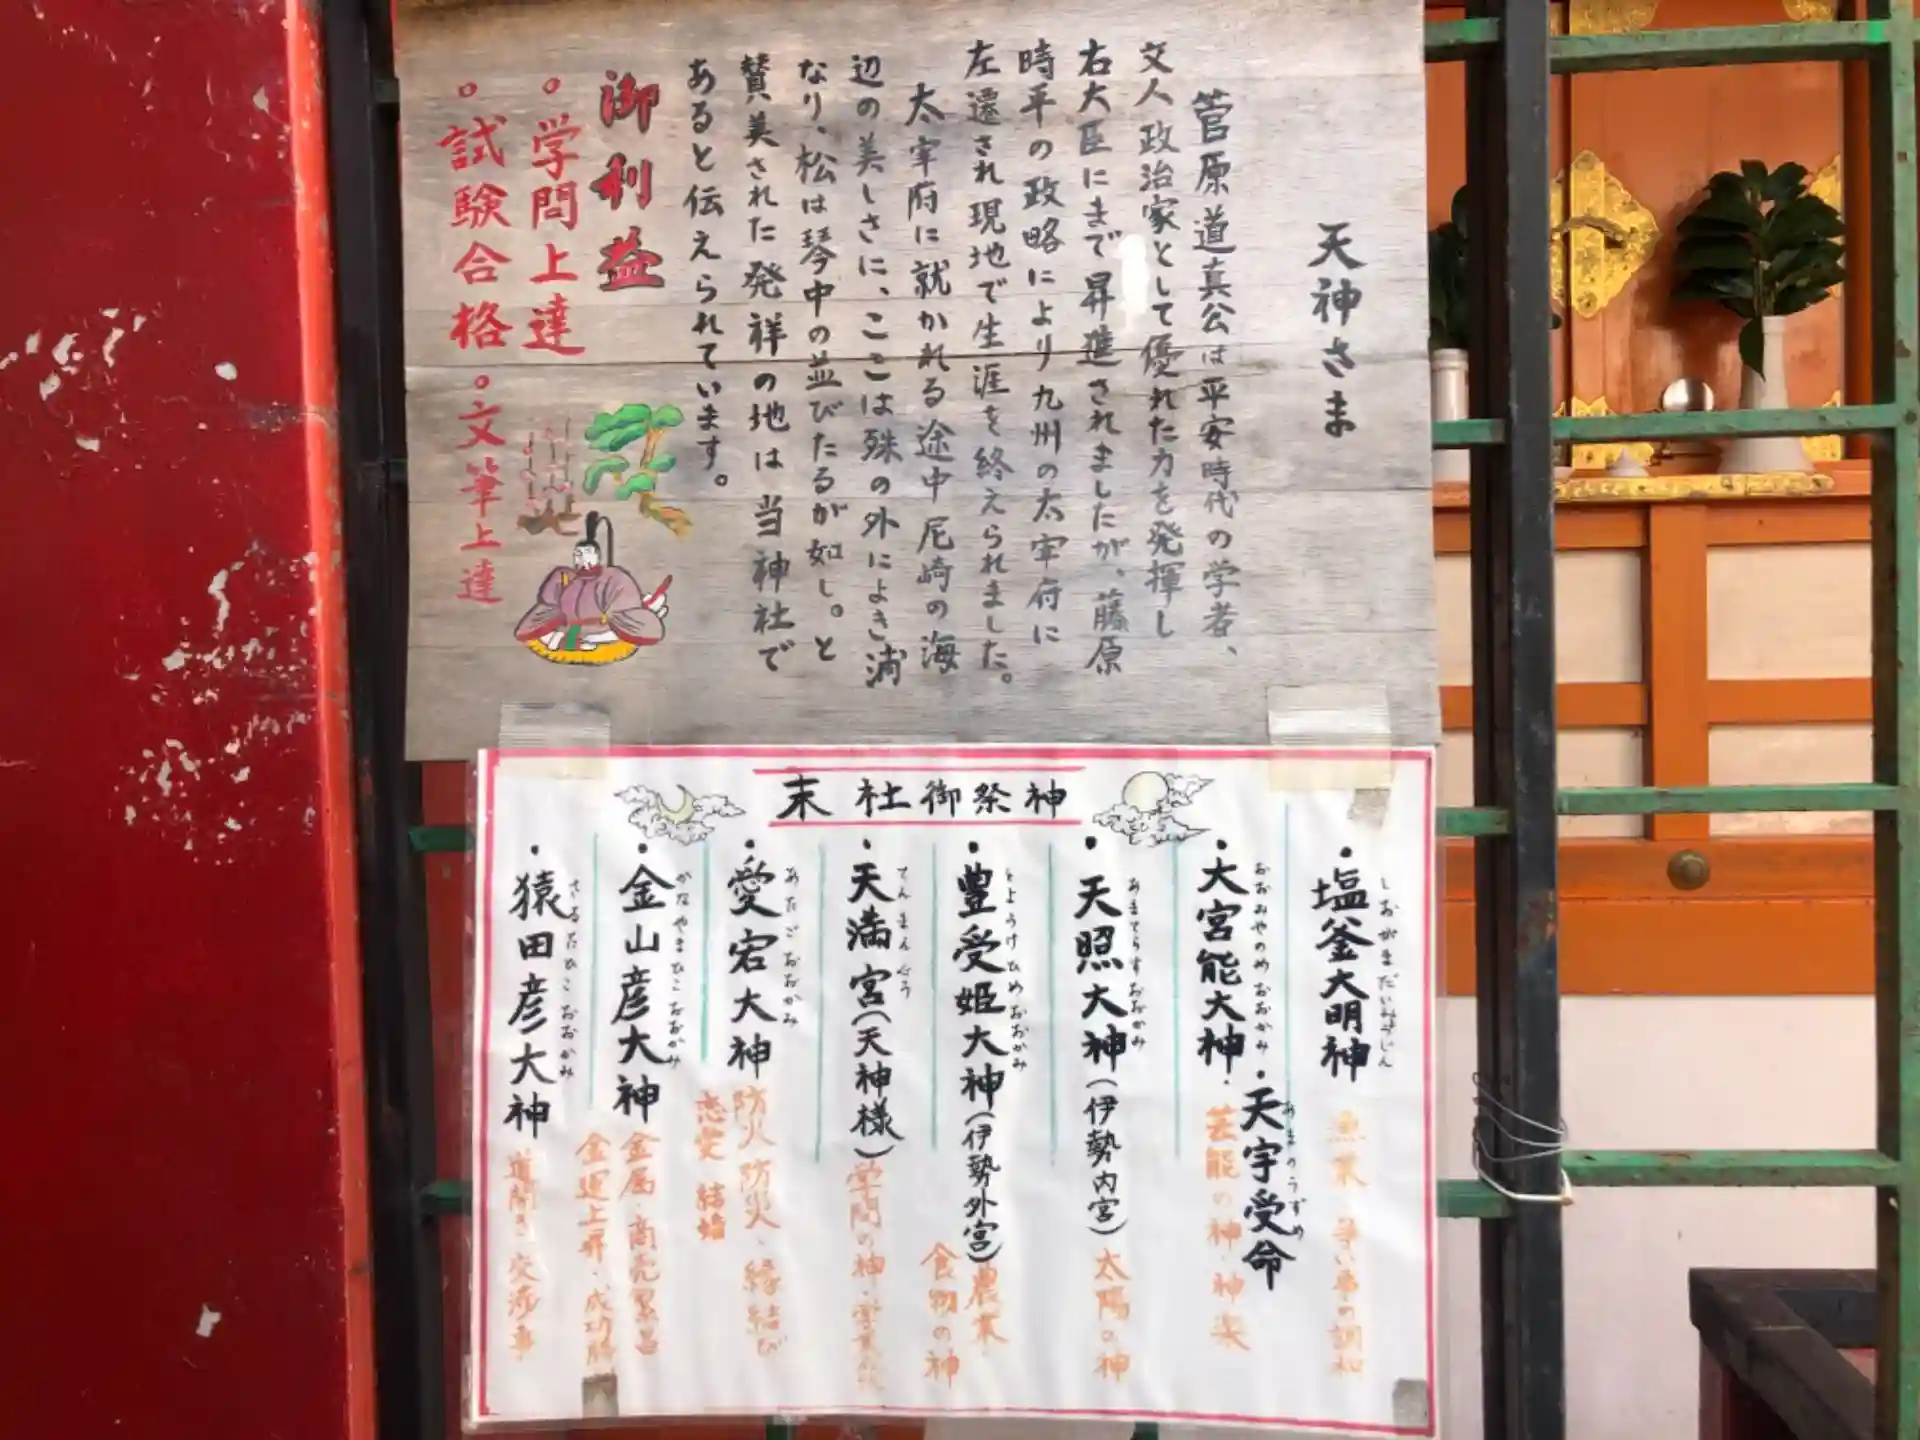 天神さま
菅原道真公は平安時代の学者、
文人政治家として優れた力を発揮し
右大臣にまで昇進されましたが、藤原
時平の政略により九州の太宰府に
左遷され現地で生涯を終えられました。
太宰府に就かれる途中尼崎の海
辺の美しさに、ここは殊の外によき浦
なり、松は琴中の並びたるが如し。と
賛美された発祥の地は当神社で
あると伝えられています。
御利益
。学問上達
。試験合格。文筆上達
末社御祭神
・塩釜大明神
しおがまだいみょうじん
漁業・争い事の調和
・大宮能大神
おおみやのめおおかみ
・天宇受命
あまのうずめ
芸能の神・神楽
・天照大神(伊勢内宮)
あまてらすおおかみ
太陽の神
・豊受姫大神(伊勢外宮)
とようけひめおおかみ
農業
食物の神
・天満宮(天神様)
てんまんぐう
学問の神・学業
・愛宕大神
あたごおおかみ
防火防災・縁結び
恋愛 結婚
・金山彦大神
かなやまひこおおかみ
金属・商売繁昌
金運上昇・成功勝
・猿田彦大神
さるたひこおおかみ
道開き・交渉事